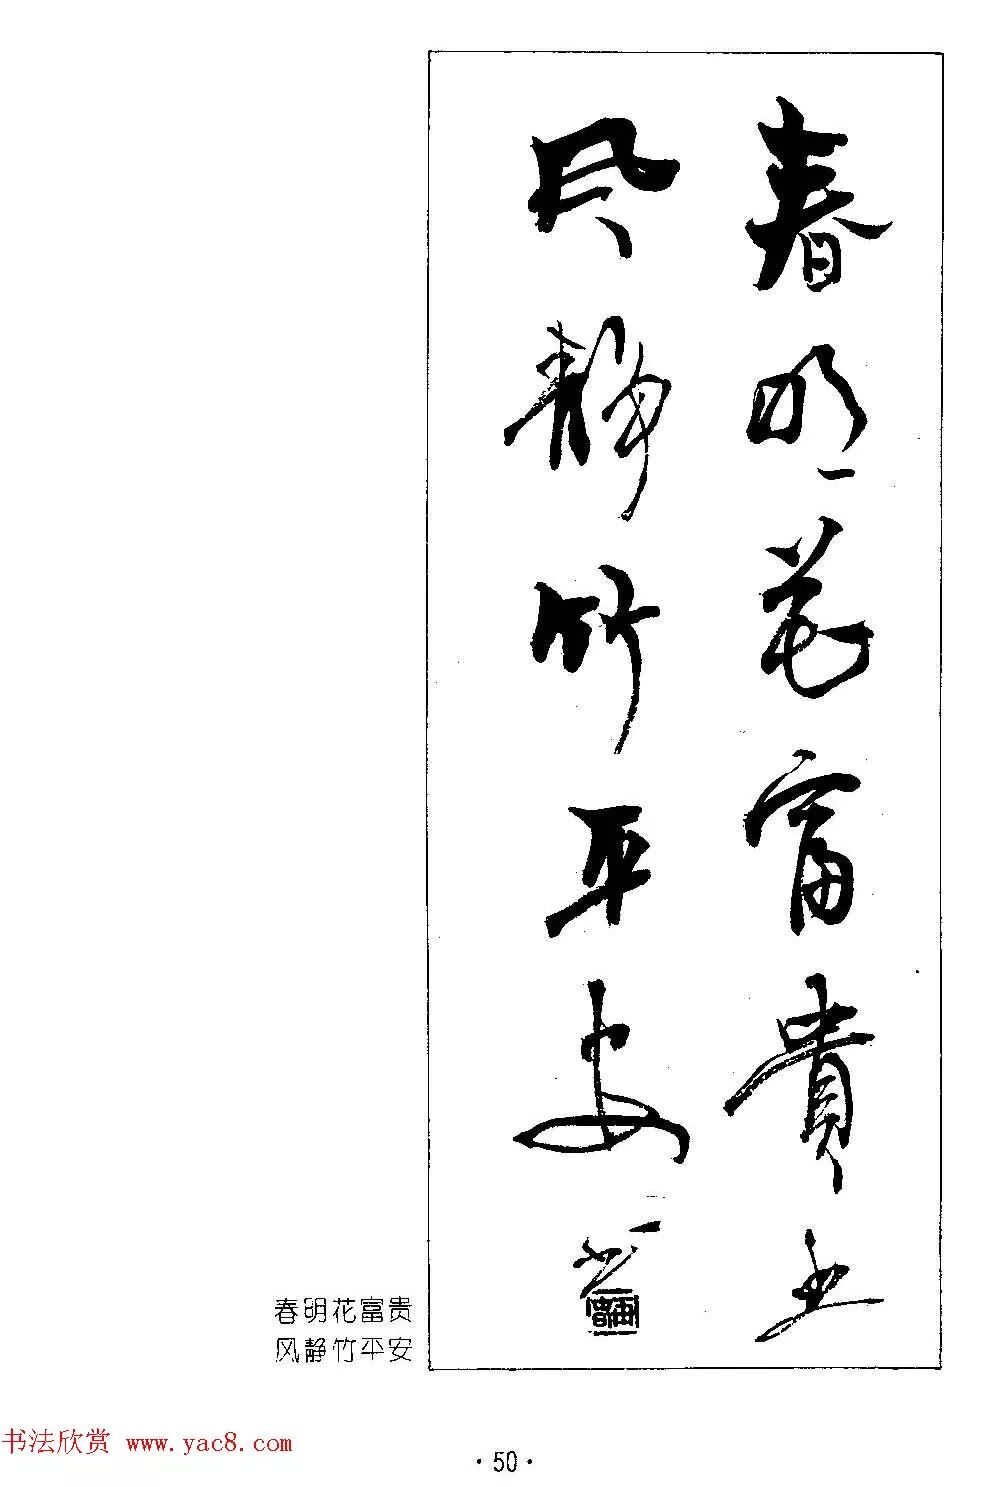 春明花富貴
风静竹平安
春明花富贵
风静竹平安
书法欣赏 www.yac8.com
·50·